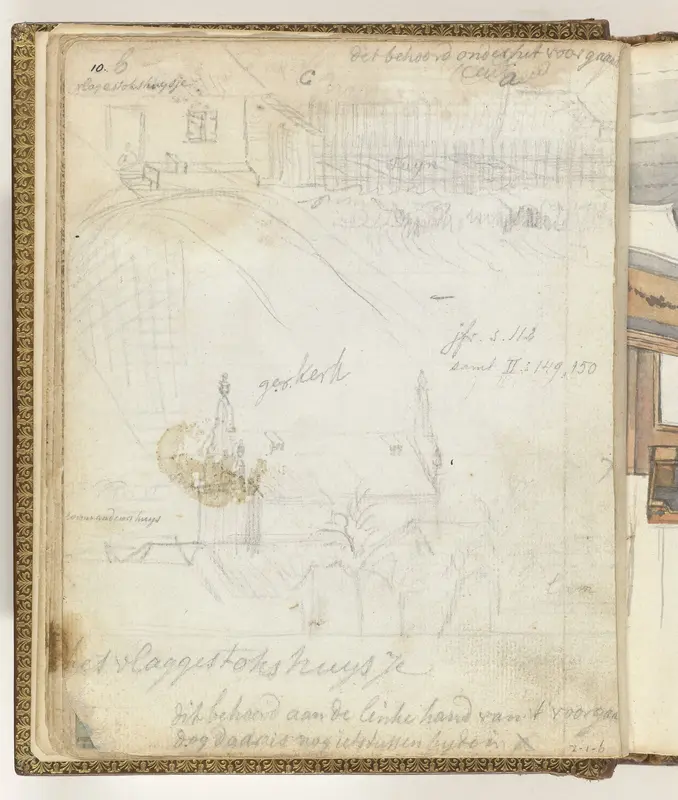 dit behoord onder het voorgaan
10. 6
vlagestokshuysje
C
a
tuyn
jfr. s. 112
samt II: 149, 150
ger. Kerk
commandeurs huys
het vlaggestokshuysje
dit behoord aan de linke hand van 't voorgaa
dog daar is nog iets tussen
2-1-6